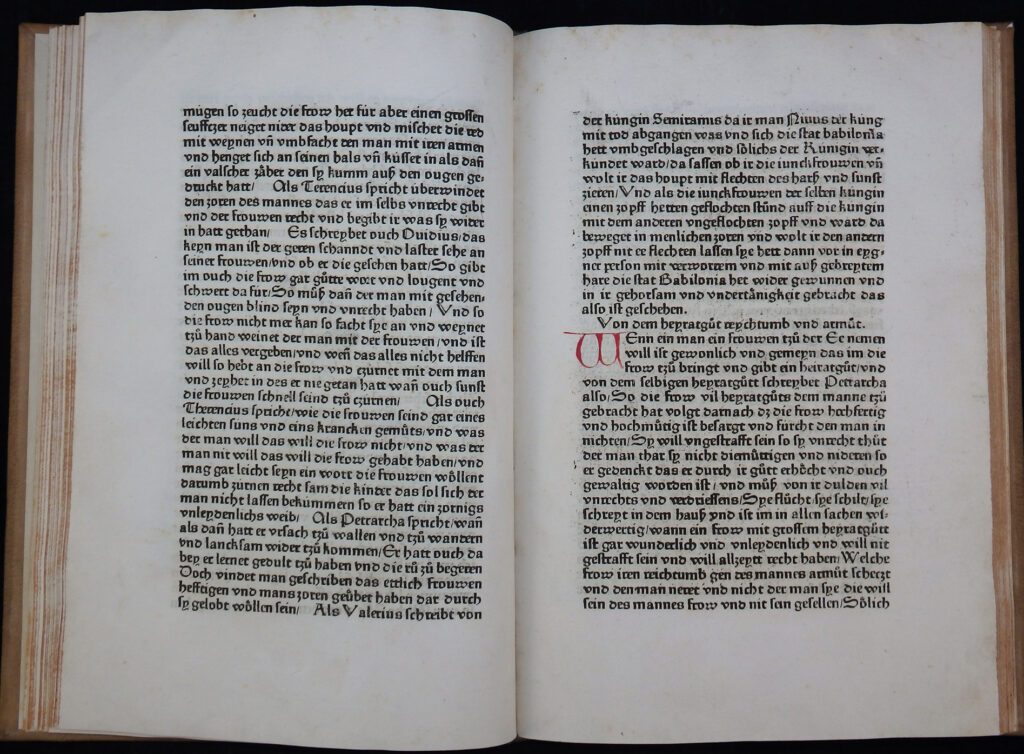 mügen so zeucht die frow her für aber einen grossen
seuffczer neiget nider das houpt vnd mischet die red
mit weynen vñ vmbfacht den man mit iren armen
vnd henget sich an seinen hals vñ küsset in als dañ
ein valscher zåher den sy kumm auß den ougen ge-
druckt hatt/ Als Terencius spricht überwindet
den zoren des mannes das er im selbs vnrecht gibt
vnd der frouwen recht vnd begibt ir was sy wider
in hatt gethan/ Es schreybet ouch Ouidius/das
keyn man ist der geren schanndt vnd laster sehe an
seiner frouwen/vnd ob er die gesehen hatt/So gibt
im ouch die frow gar gütte wort vnd lougent vnd
schwert da für/So můß dañ der man mit gesehen-
den ougen blind seyn vnd vnrecht haben/ Vnd so
die frow nicht mer kan so facht sye an vnd weynet
tzů hand weinet der man mit der frouwen/vnd ist
das alles vergeben/vnd weñ das alles nicht helffen
will so hebt an die frow vnd czürnet mit dem man
vnd zeyhet in des er nie getan hatt wañ ouch sunst
die frouwen schnell seind tzů czürnen/ Als ouch
Therencius spricht/wie die frouwen seind gar eines
leichten suns vnd eins krancken gemůts/vnd was
der man will das will die frow nicht/vnd was der
man nit will das will die frow gehabt haben/vnd
mag gar leicht seyn ein wort die frouwen wöllent
darumb zürnen recht sam die kinder das sol sich der
man nicht lassen bekümmern so er hatt ein zornigs
vnleydenlichs weib/ Als Petrarcha spricht/wañ
als dañ hatt er vrsach tzů wallen vnd tzů wandern
vnd lancksam wider tzů kommen/Er hatt ouch da
bey er lernet gedult tzů haben vnd die rů zů begeren
Doch vindet man geschriben das ettlich frouwen
hefftigen vnd mans zoren geůbet haben dar durch
sy gelobt wöllen sein/ Als Valerius schreibt von
der küngin Semiramis da ir man Ninus der küng
mit tod abgangen was vnd sich die stat babilonia
hett vmbgeschlagen vnd sölichs der Künigin ver-
kündet ward/da sassen ob ir die iunckfrouwen vñ
wolt ir das houpt mit flechten des harß vnd sunst
zieren/Vnd als die iunckfrouwen der selben küngin
einen zopff hetten geflochten stůnd auff die küngin
mit dem anderen vngeflochten zopff vnd ward da
beweget in menlichen zoren vnd wolt ir den andern
zopff nit er flechten lassen sye hett dann vor in eyg-
ner person mit verworrem vnd mit auß gebreytem
hare die stat Babilonia her wider gewunnen vnd
in ir gehorsam vnd vndertånigkeit gebracht das
also ist geschehen.
Von dem heyratgůt reychtumb vnd armůt.
WEnn ein man ein frouwen tzů der Ee nemen
will ist gewonlich vnd gemeyn das im die
frow tzů bringt vnd gibt ein heiratgůt/vnd
von dem selbigen heyratgůtt schreybet Petrarcha
also/So die frow vil heyratgůts dem manne tzů
gebracht hat volgt darnach dz die frow hochfertig
vnd hochmütig ist besargt vnd fürcht den man in
nichten/Sy will vngestrafft sein so sy vnrecht thůt
der man thar sy nicht diemüttigen vnd nideren so
er gedenckt das er durch ir gůtt erhöcht vnd ouch
gewaltig worden ist/vnd můß von ir dulden vil
vnrechts vnd verdriessens/Sye flůcht/sye schilt/sye
schreyt in dem hauß vnd ist im in allen sachen wi-
derwertig/wann ein frow mit grossem heyratgůtt
ist gar wunderlich vnd vnleydenlich vnd will nit
gestrafft sein vnd will allzeyt recht haben/Welche
frow iren reichtumb gen des mannes armůt schetzt
vnd den man neret vnd nicht der man sye die will
sein des mannes frow vnd nit sein gesellen/Sölich